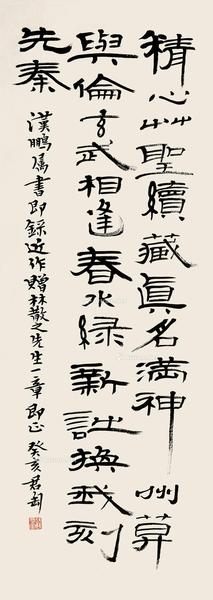 精心艸聖續藏真名滿神州算
與倫玄武相逢春水緑新詩換我刻
先秦
漢鵬屬書即録近作贈林散之先生一章即正癸亥君匋